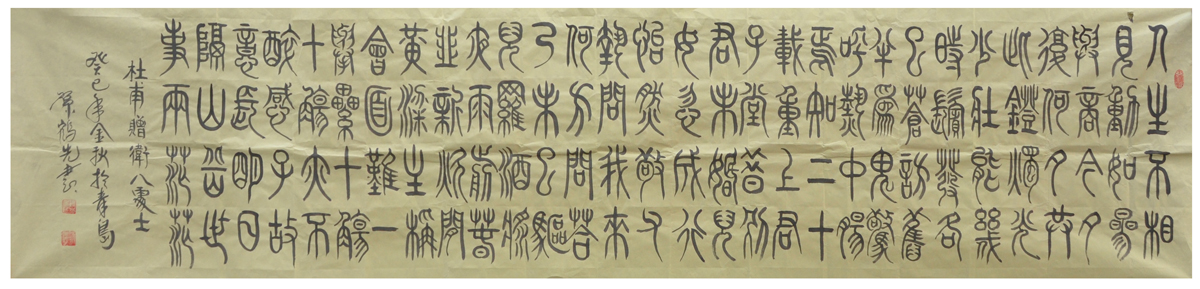 人生不相
見動如參
與商今夕
復何夕共
此鐙燭光
少壯能幾
時鬢髮各
已蒼訪舊
半為鬼驚
呼熱中腸
焉知二十
載重上君
子堂昔別
君未婚兒
女忽成行
怡然敬父
執問我來
何方問答
乃未已驅
兒羅酒漿
夜雨剪春
韭新炊間
黃粱主稱
會面難一
舉累十觴
十觴亦不
醉感子故
意長明日
隔山岳世
事兩茫茫
杜甫贈衛八處士
癸巳年金秋於青島
鶴先書